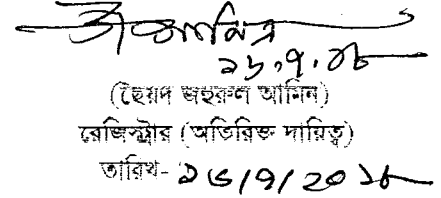 ১৬.৭.১৮
(ছৈয়দ জহুরুল আমিন)
রেজিস্ট্রার (অতিরিক্ত দায়িত্ব)
তারিখ- ১৬/৭/২০১৮